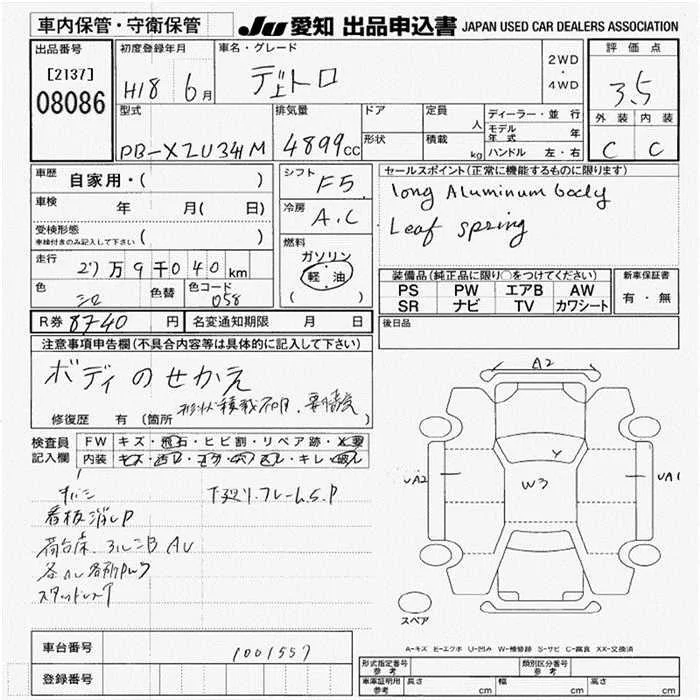 車内保管・守衛保管
JU 愛知 出品申込書 JAPAN USED CAR DEALERS ASSOCIATION
出品番号
[2137]
08086
初度登録年月
H18 6月
車名・グレード
2WD
・
4WD
評価点
3.5
外装 内装
C C
型式
PB-XZU341M
排気量
4899cc
ドア
形状
定員 人
積載 kg
ディーラー・並行
モデル年式 年
ハンドル 左・右
車歴 自家用・( )
車検 年 月( 日)
受検形態
車検付きのみ記入して下さい ( )
走行 27万9千040km
色 シロ 色替 色コード 058
シフト F5
冷房 A.C
燃料
ガソリン
軽油
( )
セールスポイント(正常に機能するものに限ります)
long Aluminum body
Leaf spring
装備品(純正品に限り○をつけてください)
PS PW エアB AW
SR ナビ TV カワシート
新車保証書
有・無
後日品
R券 8740円 名変通知期限 月 日
注意事項申告欄(不具合内容等は具体的に記入して下さい)
ボディのせかえ
形状積載不明、要構変
修復歴 有(箇所 )
検査員
記入欄
FW キズ・飛石・ヒビ割・リペア跡・X要
内装 キズ・汚レ・コゲ・穴・スレ・キレ・破レ
下廻り.フレームS.P
看板消しP
A2
UA2
Y
W3
UA1
スペア
A-キズ E-エクボ U-凹み W-補修跡 S-サビ C-腐食 XX-交換済
車台番号 1001557
登録番号
形式指定番号
参考
類別区分番号
参考
車庫証明用
参考
長さ cm 幅 cm 高さ cm